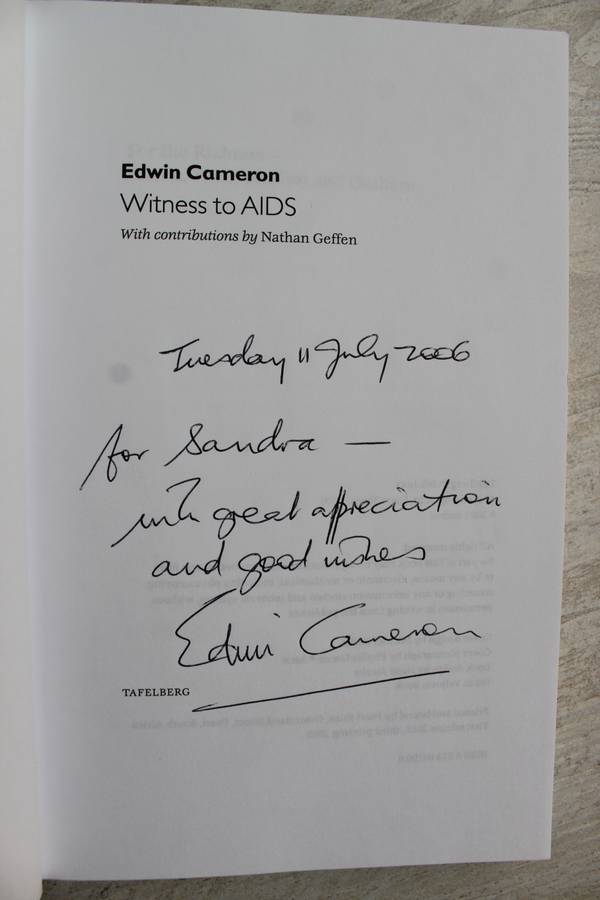 Edwin Cameron
Witness to AIDS
With contributions by Nathan Geffen
Tuesday 11 July 2006
for Sandra —
with great appreciation
and good wishes
Edwin Cameron
TAFELBERG